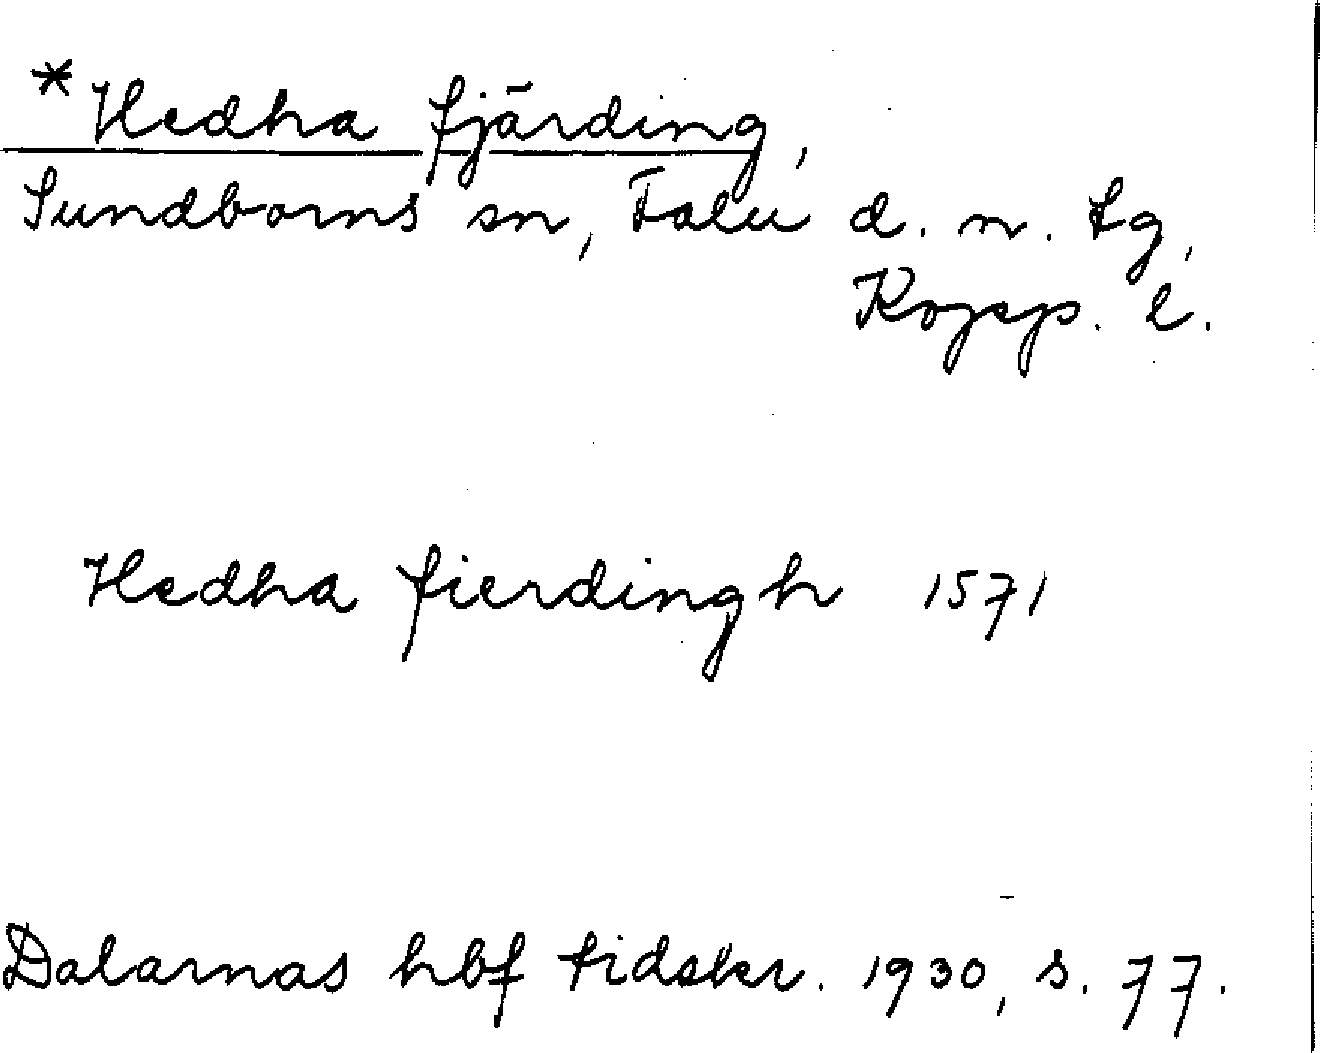 *Hedha fjärding,
Sundborns sn, Falu d. n. tg,
Kopp. l.
Hedha fierdingh 1571
Dalarnas hbf tidskr. 1930, s. 77.